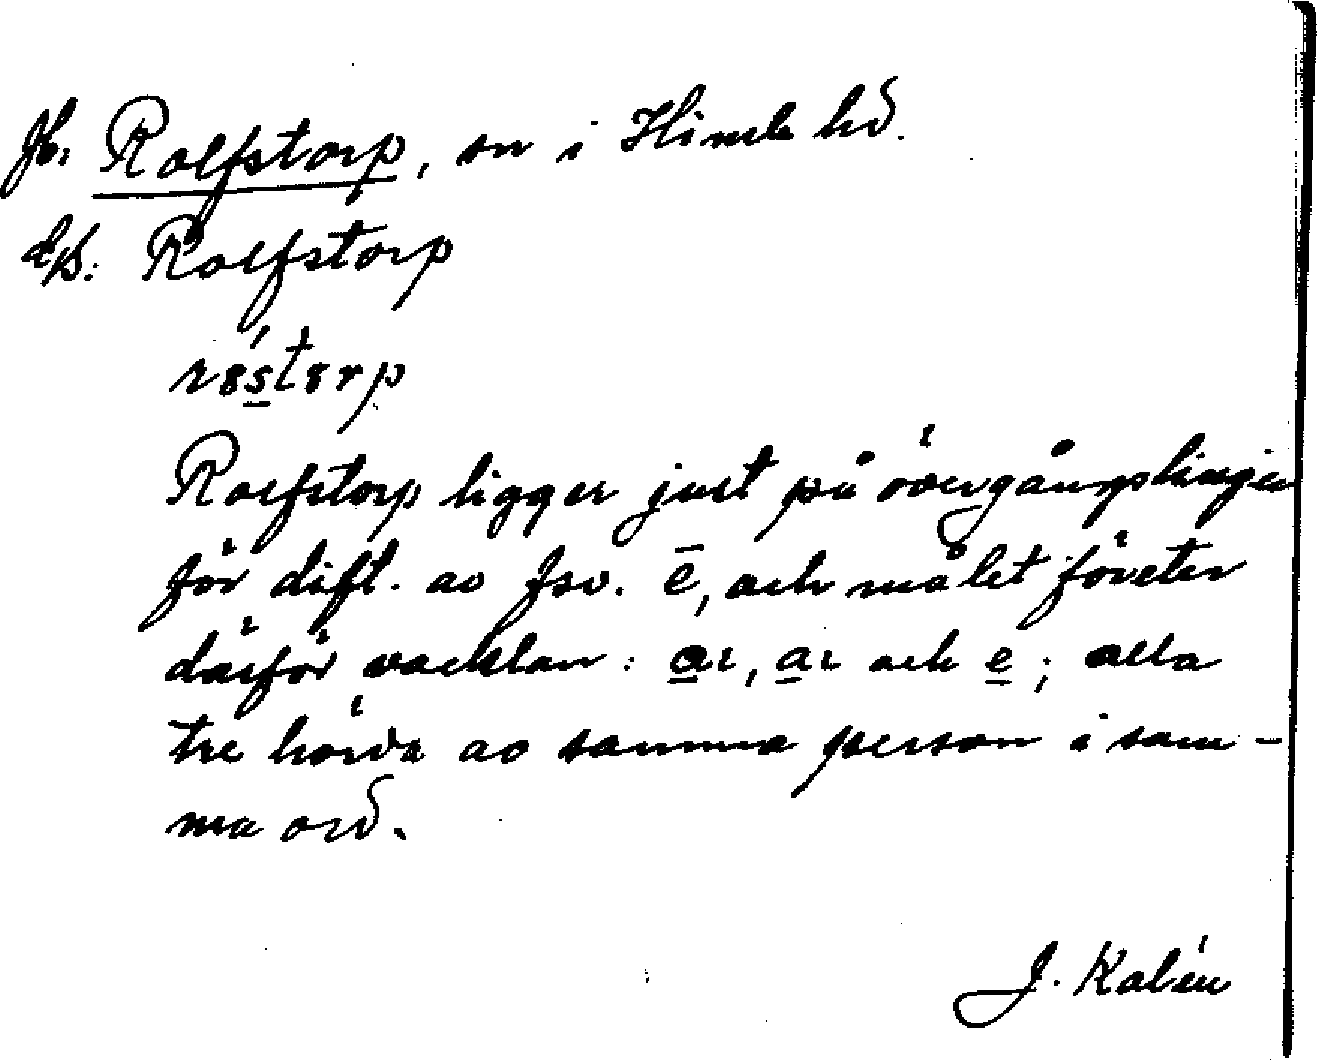 Jb. Rolfstorp, sn i Himle hd.
Eb. Rolfstorp
Rolfstorp ligger just på övergångslinjen
för dift. av fsv. ē, och målet företer
därför vacklan: ai, ai och e; alla
tre hörda av samma person i sam-
ma ord.
J. Kalén